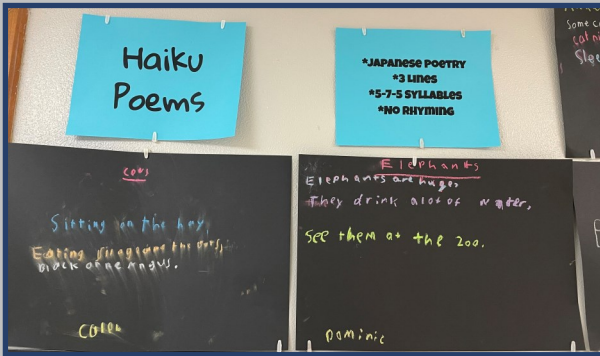 Haiku
Poems
*JAPANESE POETRY
*3 LINES
*5-7-5 SYLLABLES
*NO RHYMING
Some
cat
Slee
Sitting on the hey,
Eating
black
Elephants
Elephants are huge,
They drink alot of water,
See them at the zoo.
Dominic